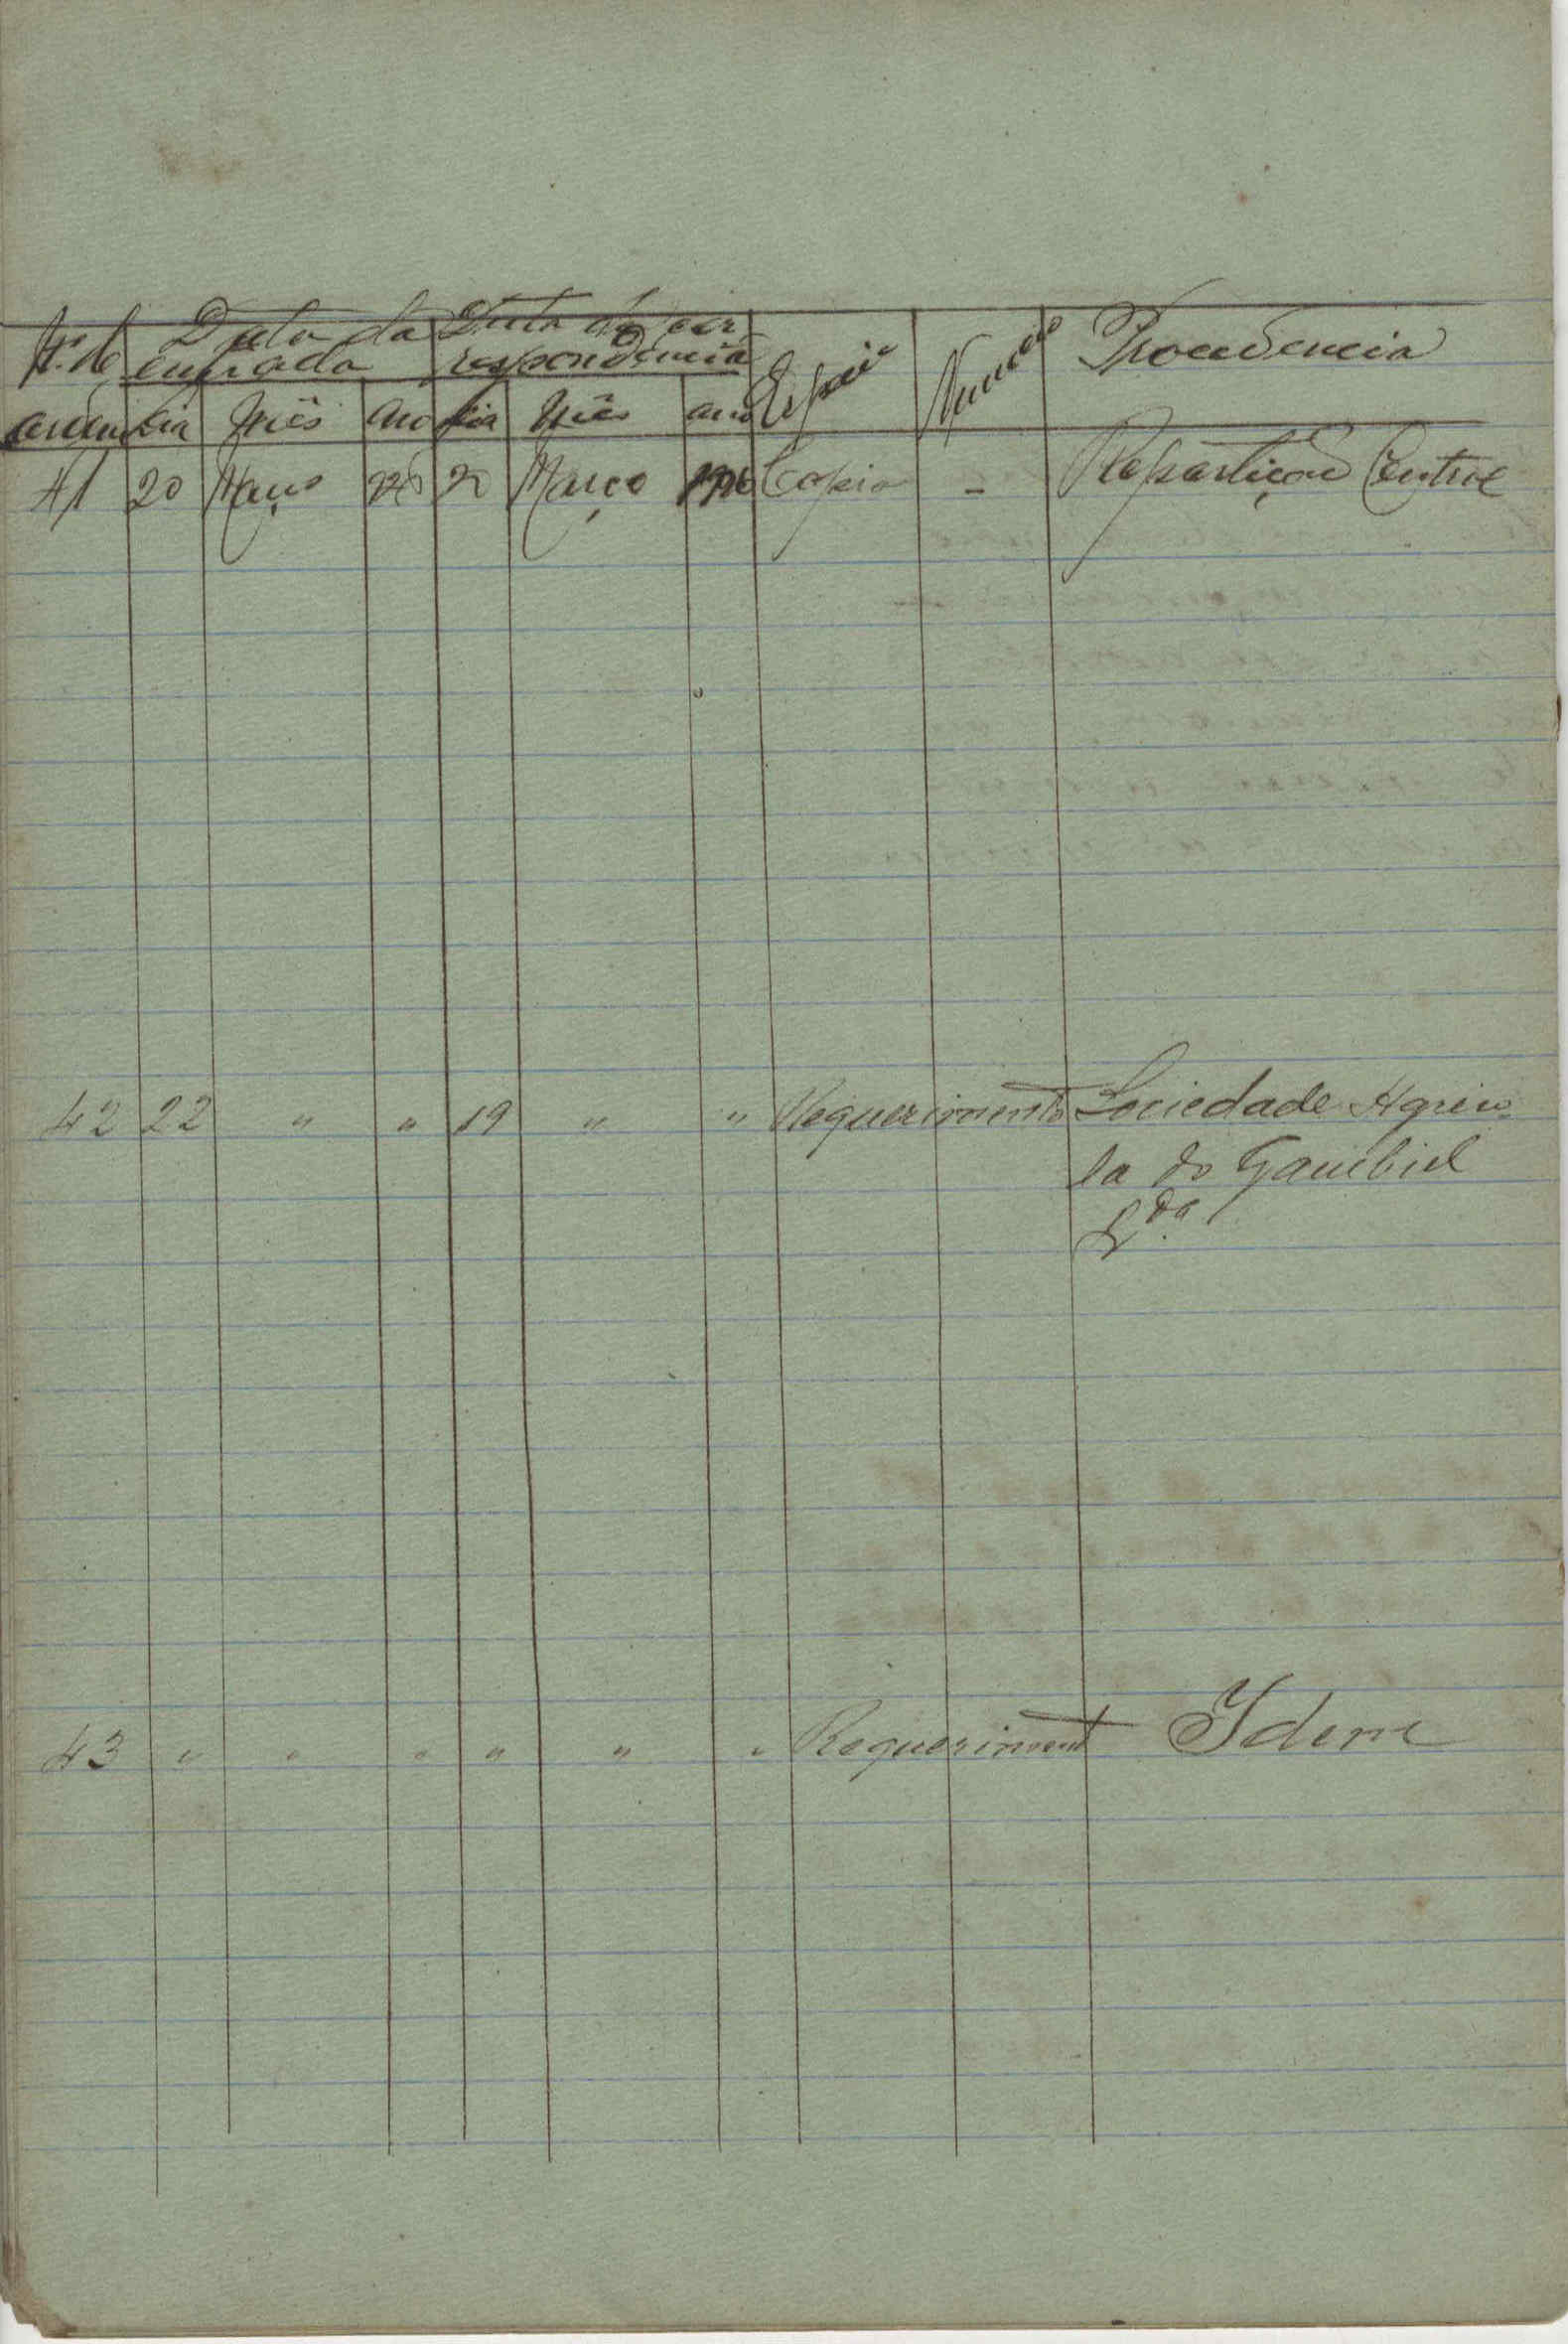 N.º de Data da Data da cor Especie Numero Procedencia
entrada respondencia
ordem dia mês ano dia mês ano
41 20 Março 926 20 Março 1926 Copia - Repartição Central
42 22 " " 19 " " Requerimento Sociedade Agrico-
la do Gambiel
L.da
43 " " " " " " Requeriment Idem